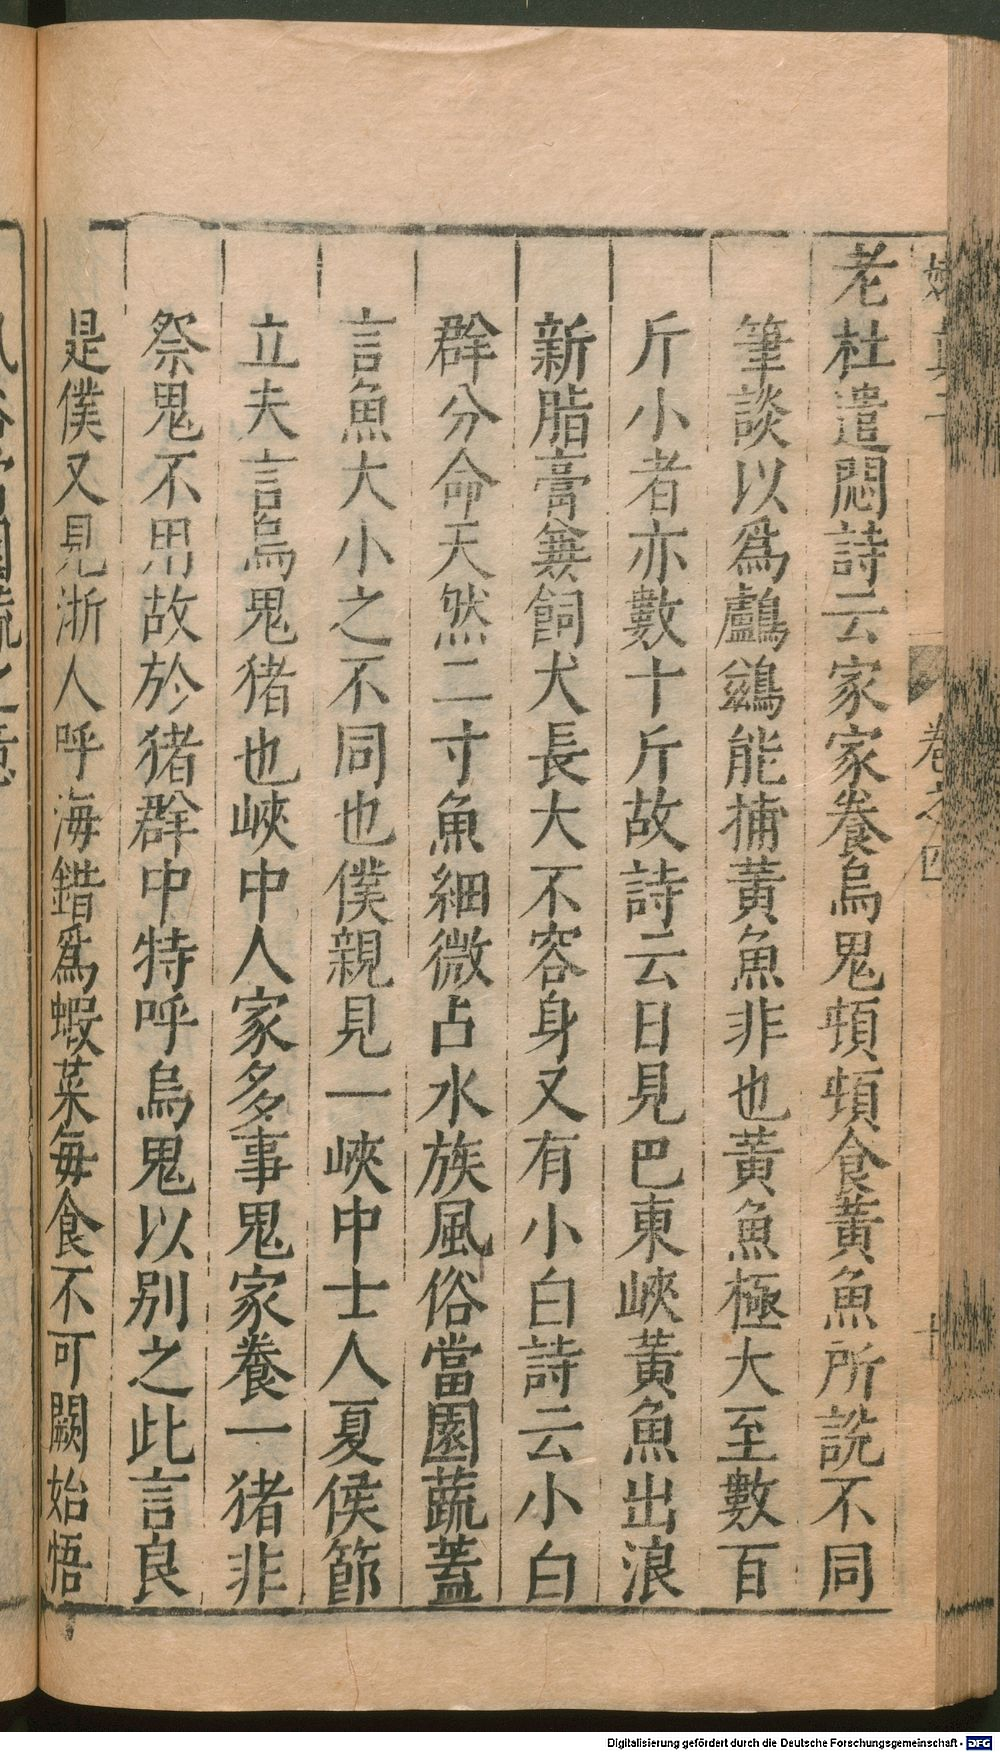 老杜遣悶詩云家家養烏鬼頓頓食黃魚所說不同
筆談以爲鸕鷀能捕黃魚非也黃魚極大至數百
斤小者亦數十斤故詩云日見巴東峽黃魚出浪
新脂膏兼飼犬長大不容身又有小白詩云小白
群分命天然二寸魚細微占水族風俗當園蔬蓋
言魚大小之不同也僕親見一峽中士人夏侯節
立夫言烏鬼猪也峽中人家多事鬼家養一猪非
祭鬼不用故於猪群中特呼烏鬼以別之此言良
是僕又見浙人呼海錯爲蝦菜每食不可闕始悟
卷之四
Digitalisierung gefördert durch die Deutsche Forschungsgemeinschaft - DFG